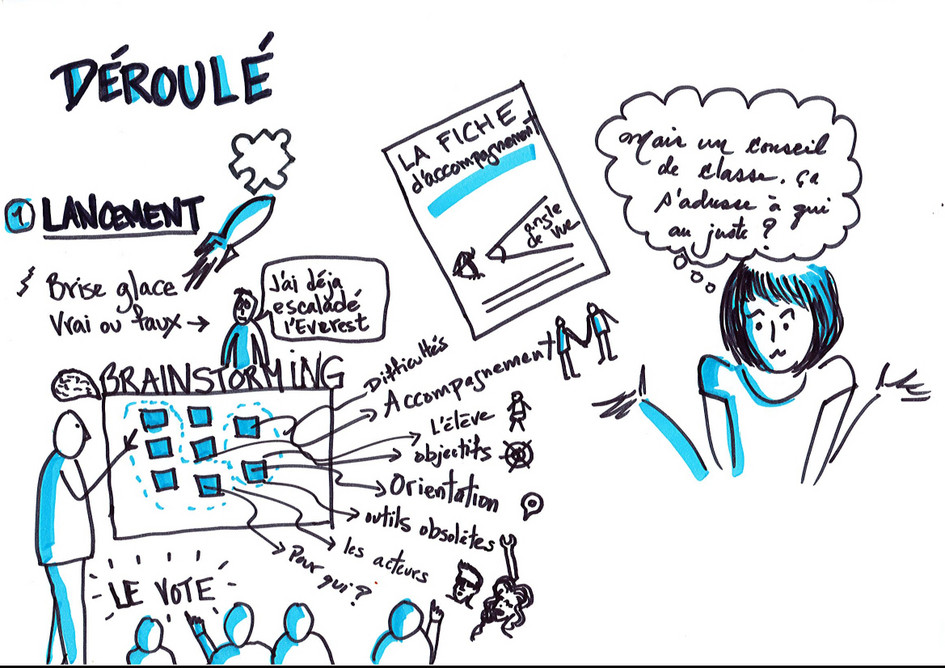 DÉROULÉ
1 LANCEMENT
Brise glace
Vrai ou faux →
J'ai déjà
escaladé
l'Everest
LA FICHE
d'accompagnement
angle
de vue
Mais un conseil
de classe, ça
s'adresse à qui
au juste ?
BRAINSTORMING
Difficultés
Accompagnement
L'élève
objectifs
Orientation
outils obsolètes
les acteurs
Pour qui ?
LE VOTE